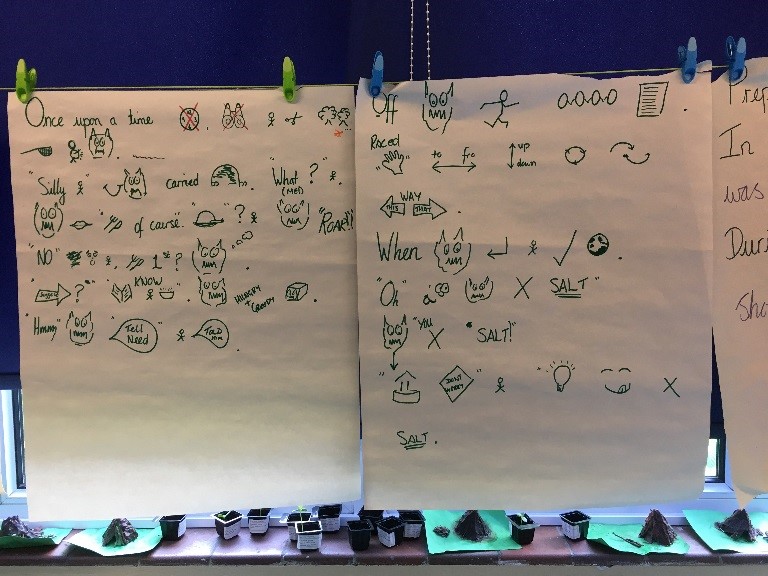 Once upon a time
"Silly carried What (ME!) ?
of course." ? "ROAR!!
"NO" 1st ?
? KNOW HUNGRY + GREEDY
"Hmmm" TELL NEED TOLD
Off
Raced to fro up down
THIS WAY THAT
When
"Oh" a X SALT"
"You X "SALT!"
" DON'T WORRY " X
SALT.
Prep
In
was
Duri
sho